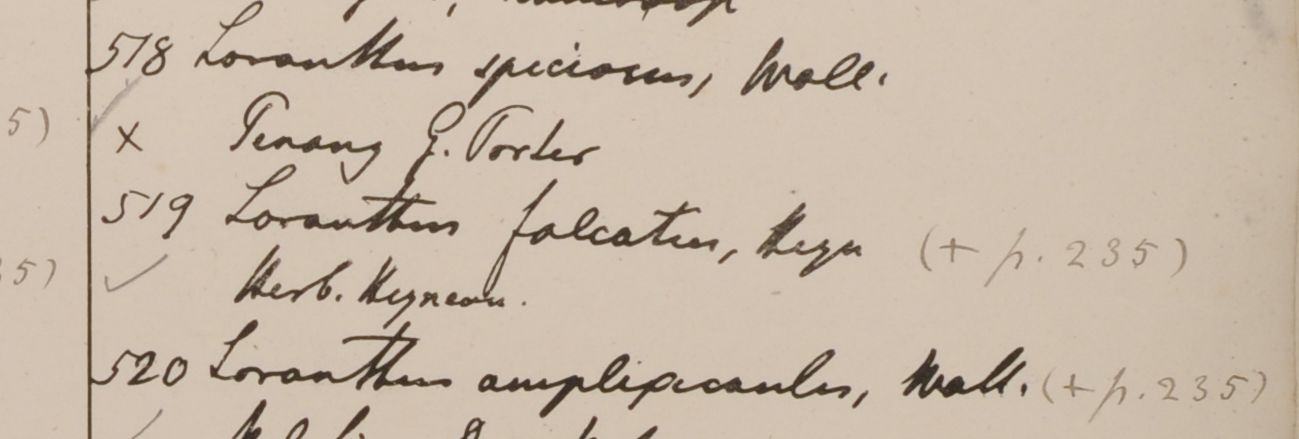 518 Loranthus speciosus, Wall.
5) × Penang G. Porter
519 Loranthus falcatus, Heyn (+ p. 235)
35) ✓ Herb. Heynean.
520 Loranthus amplexicaulis, Wall. (+ p. 235)